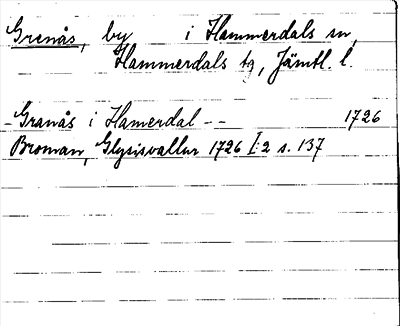 Grenås, by i Hammerdals sn,
Hammerdals tg, Jämtl. l.
-Granås i Hamerdal -- 1726
Broman, Glysisvallur 1726 I:2 s. 137